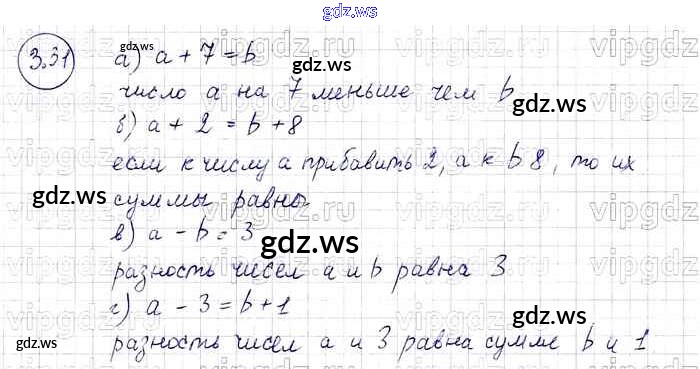 gdz.ws
3.31 а) a + 7 = b
число a на 7 меньше чем b
б) a + 2 = b + 8
если к числу a прибавить 2, а к b 8, то их
суммы равны
в) a - b = 3
разность чисел a и b равна 3
г) a - 3 = b + 1
разность чисел a и 3 равна сумме b и 1
gdz.ws
gdz.ws
gdz.ws
gdz.ws
gdz.ws
gdz.ws
gdz.ws
vipgdz.ru
vipgdz.ru
vipgdz.ru